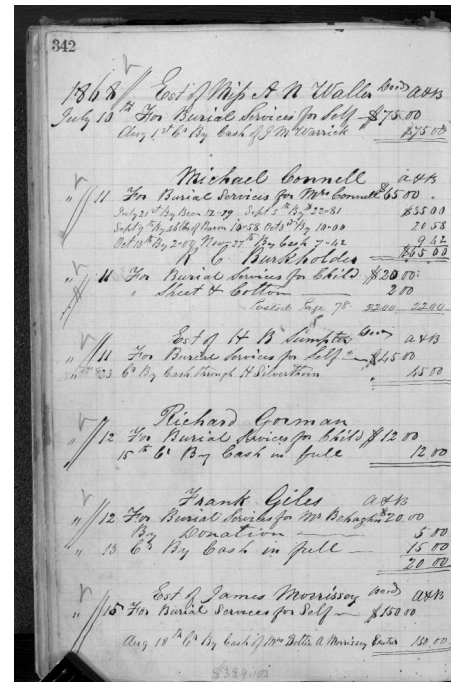 342
1868 Est of Miss A N Waller Decd A&B
July 10th For Burial Services for Self — $75.00
Aug 1st Cr By Cash of J M Warrick $75.00
Michael Connell A&B
" 11 For Burial Services for Mrs Connell $65.00
July 21st By Bran 12-19 Sept 5th By 22-81 $35.00
Sept 9th By lbs of Bacon 10-58 Oct 3rd By 10-00 20 58
Oct 15th By 2-00 Nov 27th By Cash 7-42 9 42
$65 00
R C Burkholder
" 11 For Burial Services for Child $20 00
" Sheet & Cotton 2 00
Posted Page 78 22 00 22 00
Est of H B Sumpter Decd A&B
" 11 For Burial Services for Self — $45 00
" 23 Cr By Cash through H Silverthorn 45 00
Richard Gorman
" 12 For Burial Services for Child $12 00
15th Cr By Cash in full 12 00
Frank Giles A&B
" 12 For Burial Services for Mr $20.00
By Donation — 5 00
" 13 Cr By Cash in full — 15 00
20 00
Est of James Morrissey Decd A&B
" 15 For Burial Services for Self — $150.00
Aug 18th Cr By Cash of Mrs Bettie A Morrissey 150.00
$389.00